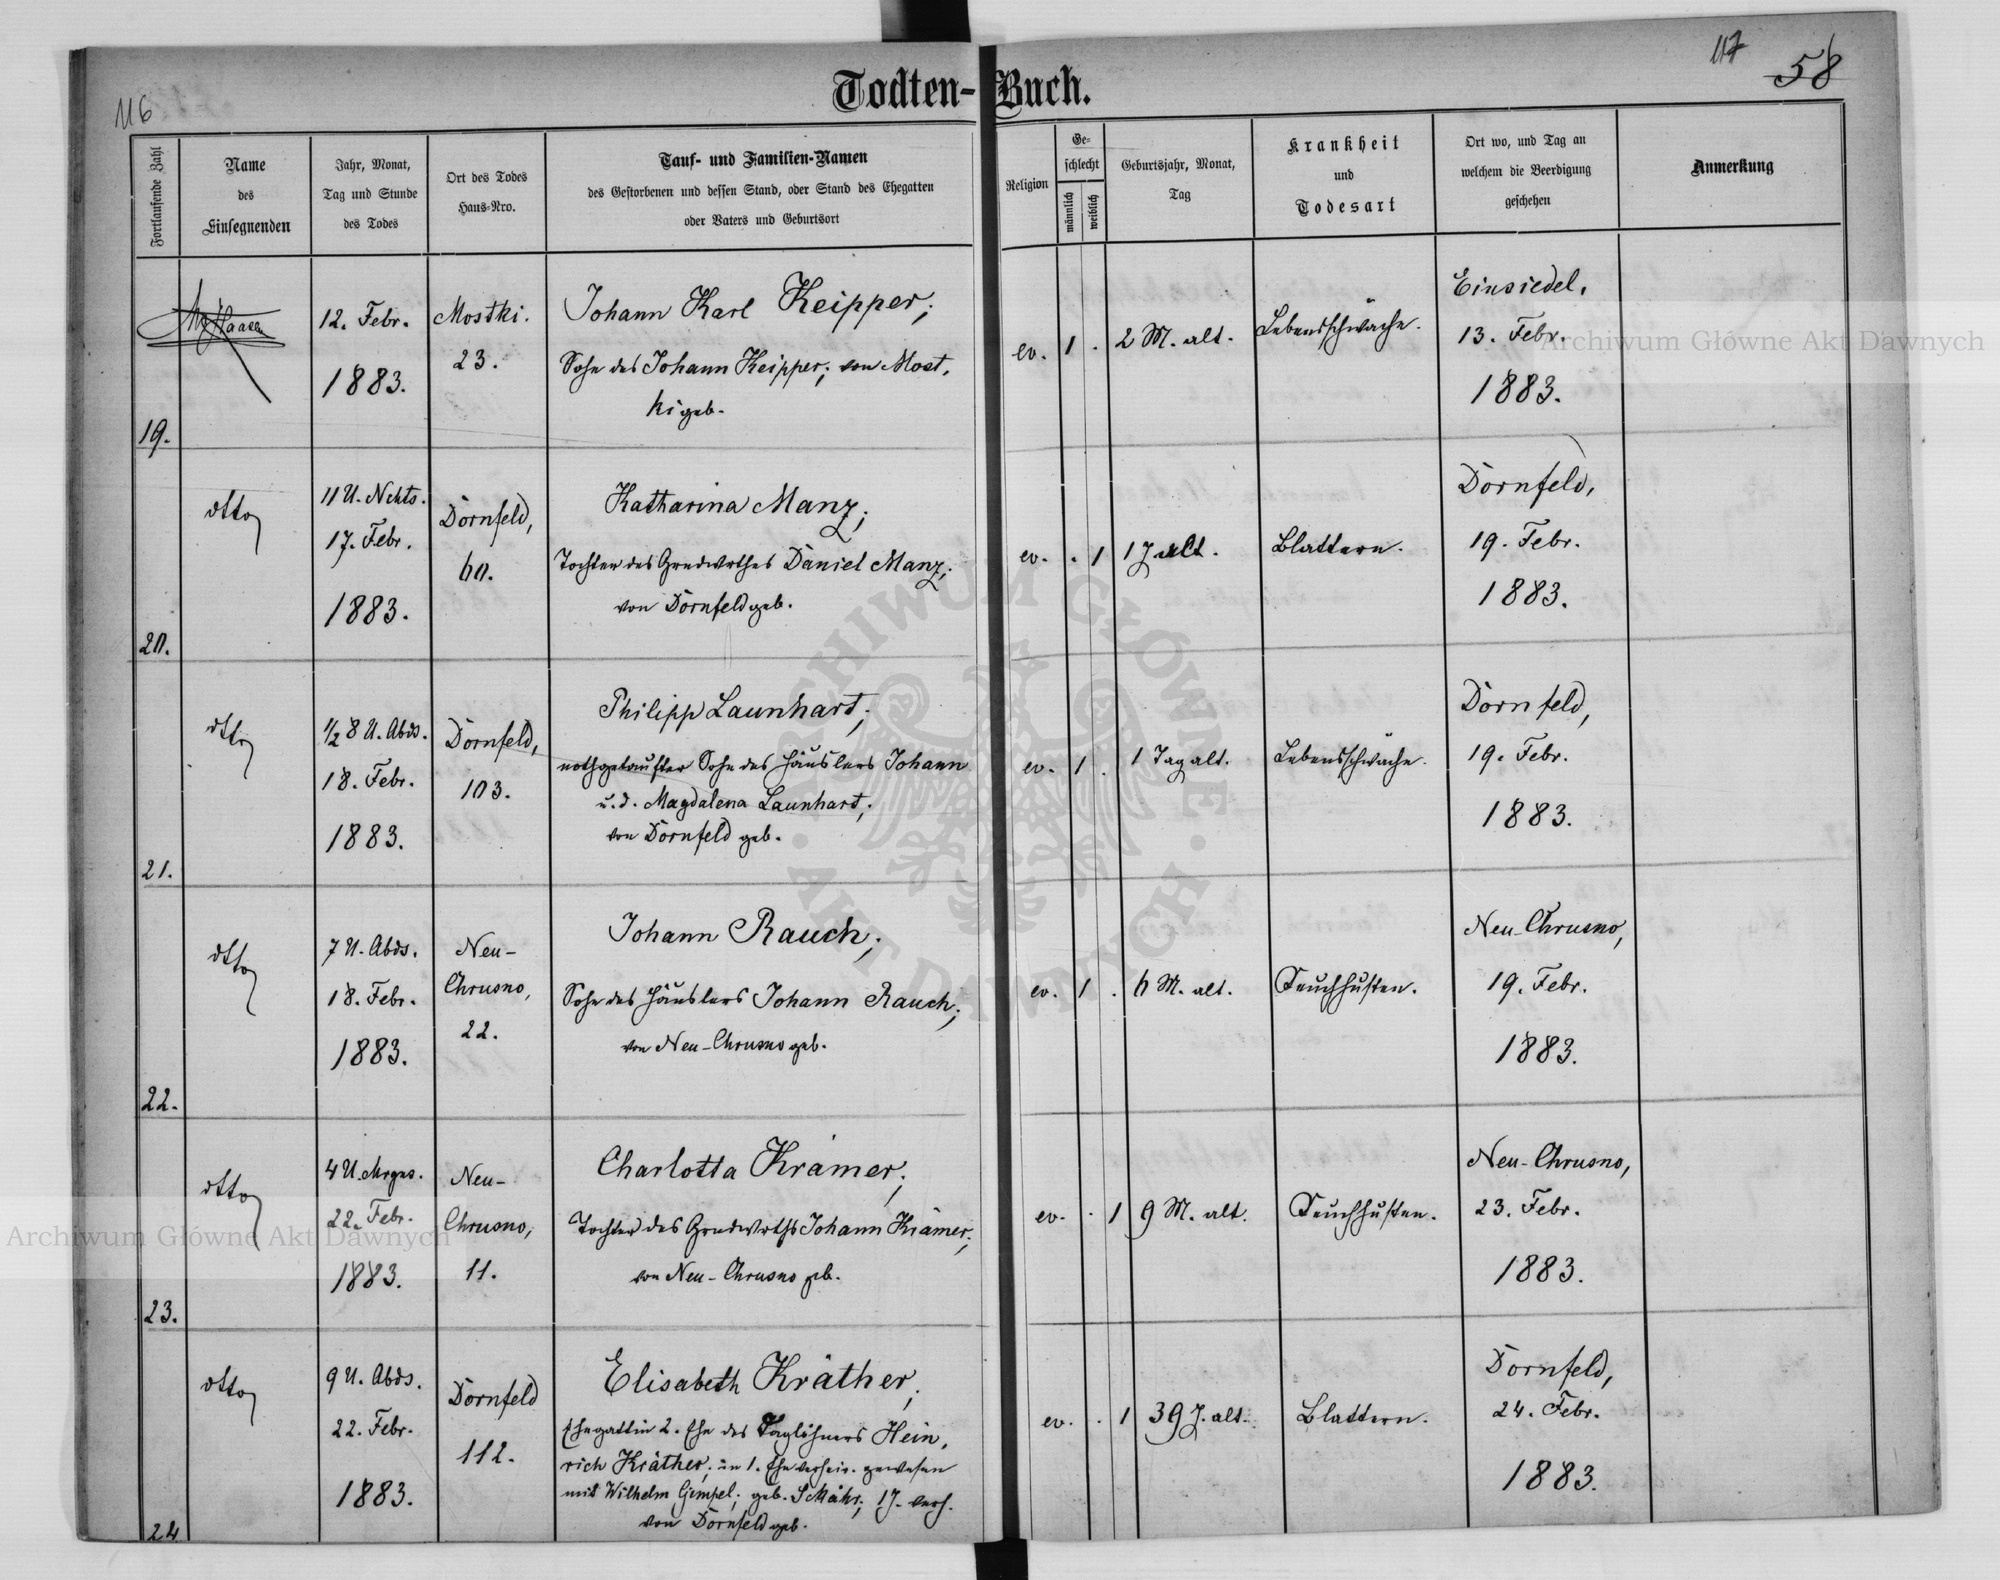 116
117
58
Todten-Buch.
Fortlaufende Zahl
Name
des
Einsegnenden
Jahr, Monat,
Tag und Stunde
des Todes
Ort des Todes
Haus-Nro.
Tauf- und Familien-Namen
des Gestorbenen und dessen Stand, oder Stand des Ehegatten
oder Vaters und Geburtsort
Religion
Ge-
schlecht
männlich
weiblich
Geburtsjahr, Monat,
Tag
Krankheit
und
Todesart
Ort wo, und Tag an
welchem die Beerdigung
geschehen
Anmerkung
19.
Haase
12. Febr.
1883.
Mostki.
23.
Johann Karl Keipper;
Sohn des Johann Keipper; von Most,
ki geb.
ev.
1 .
2 M. alt.
Lebensschwäche.
Einsiedel,
13. Febr.
1883.
20.
dtto
11 U. Nchts.
17. Febr.
1883.
Dornfeld,
60.
Katharina Manz;
Tochter des Grndwrthes Daniel Manz;
von Dornfeld geb.
ev.
. 1
1 J alt.
Blattern.
Dornfeld,
19. Febr.
1883.
21.
dtto
1/2 8 U. Abds.
18. Febr.
1883.
Dornfeld,
103.
Philipp Launhart;
nothgetaufter Sohn des Häuslers Johann
u. d. Magdalena Launhart;
von Dornfeld geb.
ev.
1 .
1 Tag alt.
Lebensschwäche.
Dornfeld,
19. Febr.
1883.
22.
dtto
7 U. Abds.
18. Febr.
1883.
Neu-
Chrusno,
22.
Johann Rauch;
Sohn des Häuslers Johann Rauch;
von Neu-Chrusno geb.
ev.
1 .
6 M. alt.
Keuchhusten.
Neu-Chrusno,
19. Febr.
1883.
23.
dtto
4 U. Mrgns.
22. Febr.
1883.
Neu-
Chrusno,
11.
Charlotta Krämer;
Tochter des Grndwrths Johann Krämer;
von Neu-Chrusno gb.
ev.
. 1
9 M. alt.
Keuchhusten.
Neu-Chrusno,
23. Febr.
1883.
24
dtto
9 U. Abds.
22. Febr.
1883.
Dornfeld
112.
Elisabeth Kräther;
Ehegattin 2. Ehe des Taglöhners Hein,
rich Kräther; in 1. Ehe verheir. gewesen
mit Wilhelm Gimpel; geb. Mähr; 17. verh.
von Dornfeld geb.
ev.
. 1
39 J. alt.
Blattern.
Dornfeld,
24. Febr.
1883.
Archiwum Główne Akt Dawnych
Archiwum Główne Akt Dawnych
ARCHIWUM GŁÓWNE · AKT DAWNYCH ·